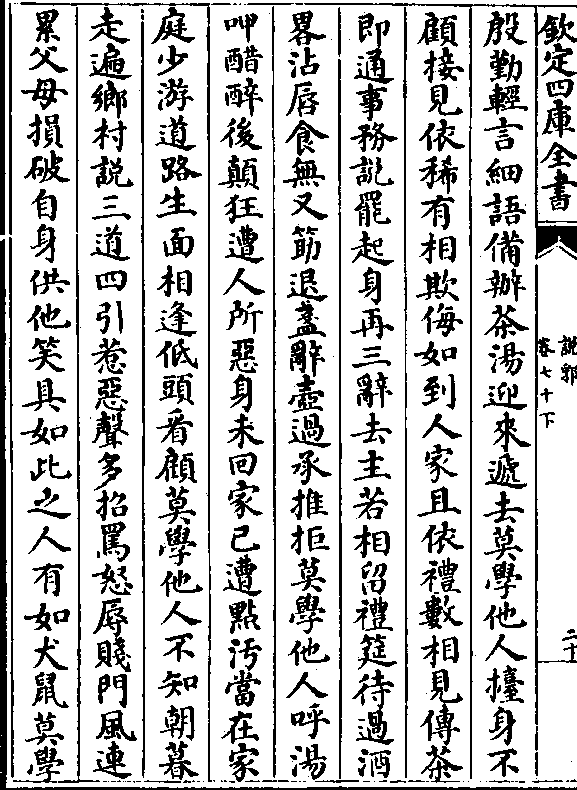 欽定四庫全書
說郛
卷七十下
二十
殷勤輕言細語備辦茶湯迎來遞去莫學他人擡身不
顧接見依稀有相欺侮如到人家且依禮數相見傳茶
即通事務說罷起身再三辭去主若相留禮筵待過酒
畧沾唇食無叉筯退盞辭壺過承推拒莫學他人呼湯
呷醋醉後顛狂遭人所惡身未回家已遭點汚當在家
庭少游道路生面相逢低頭看顧莫學他人不知朝暮
走遍鄉村說三道四引惹惡聲多招罵怒辱賤門風連
累父母損破自身供他笑具如此之人有如犬鼠莫學